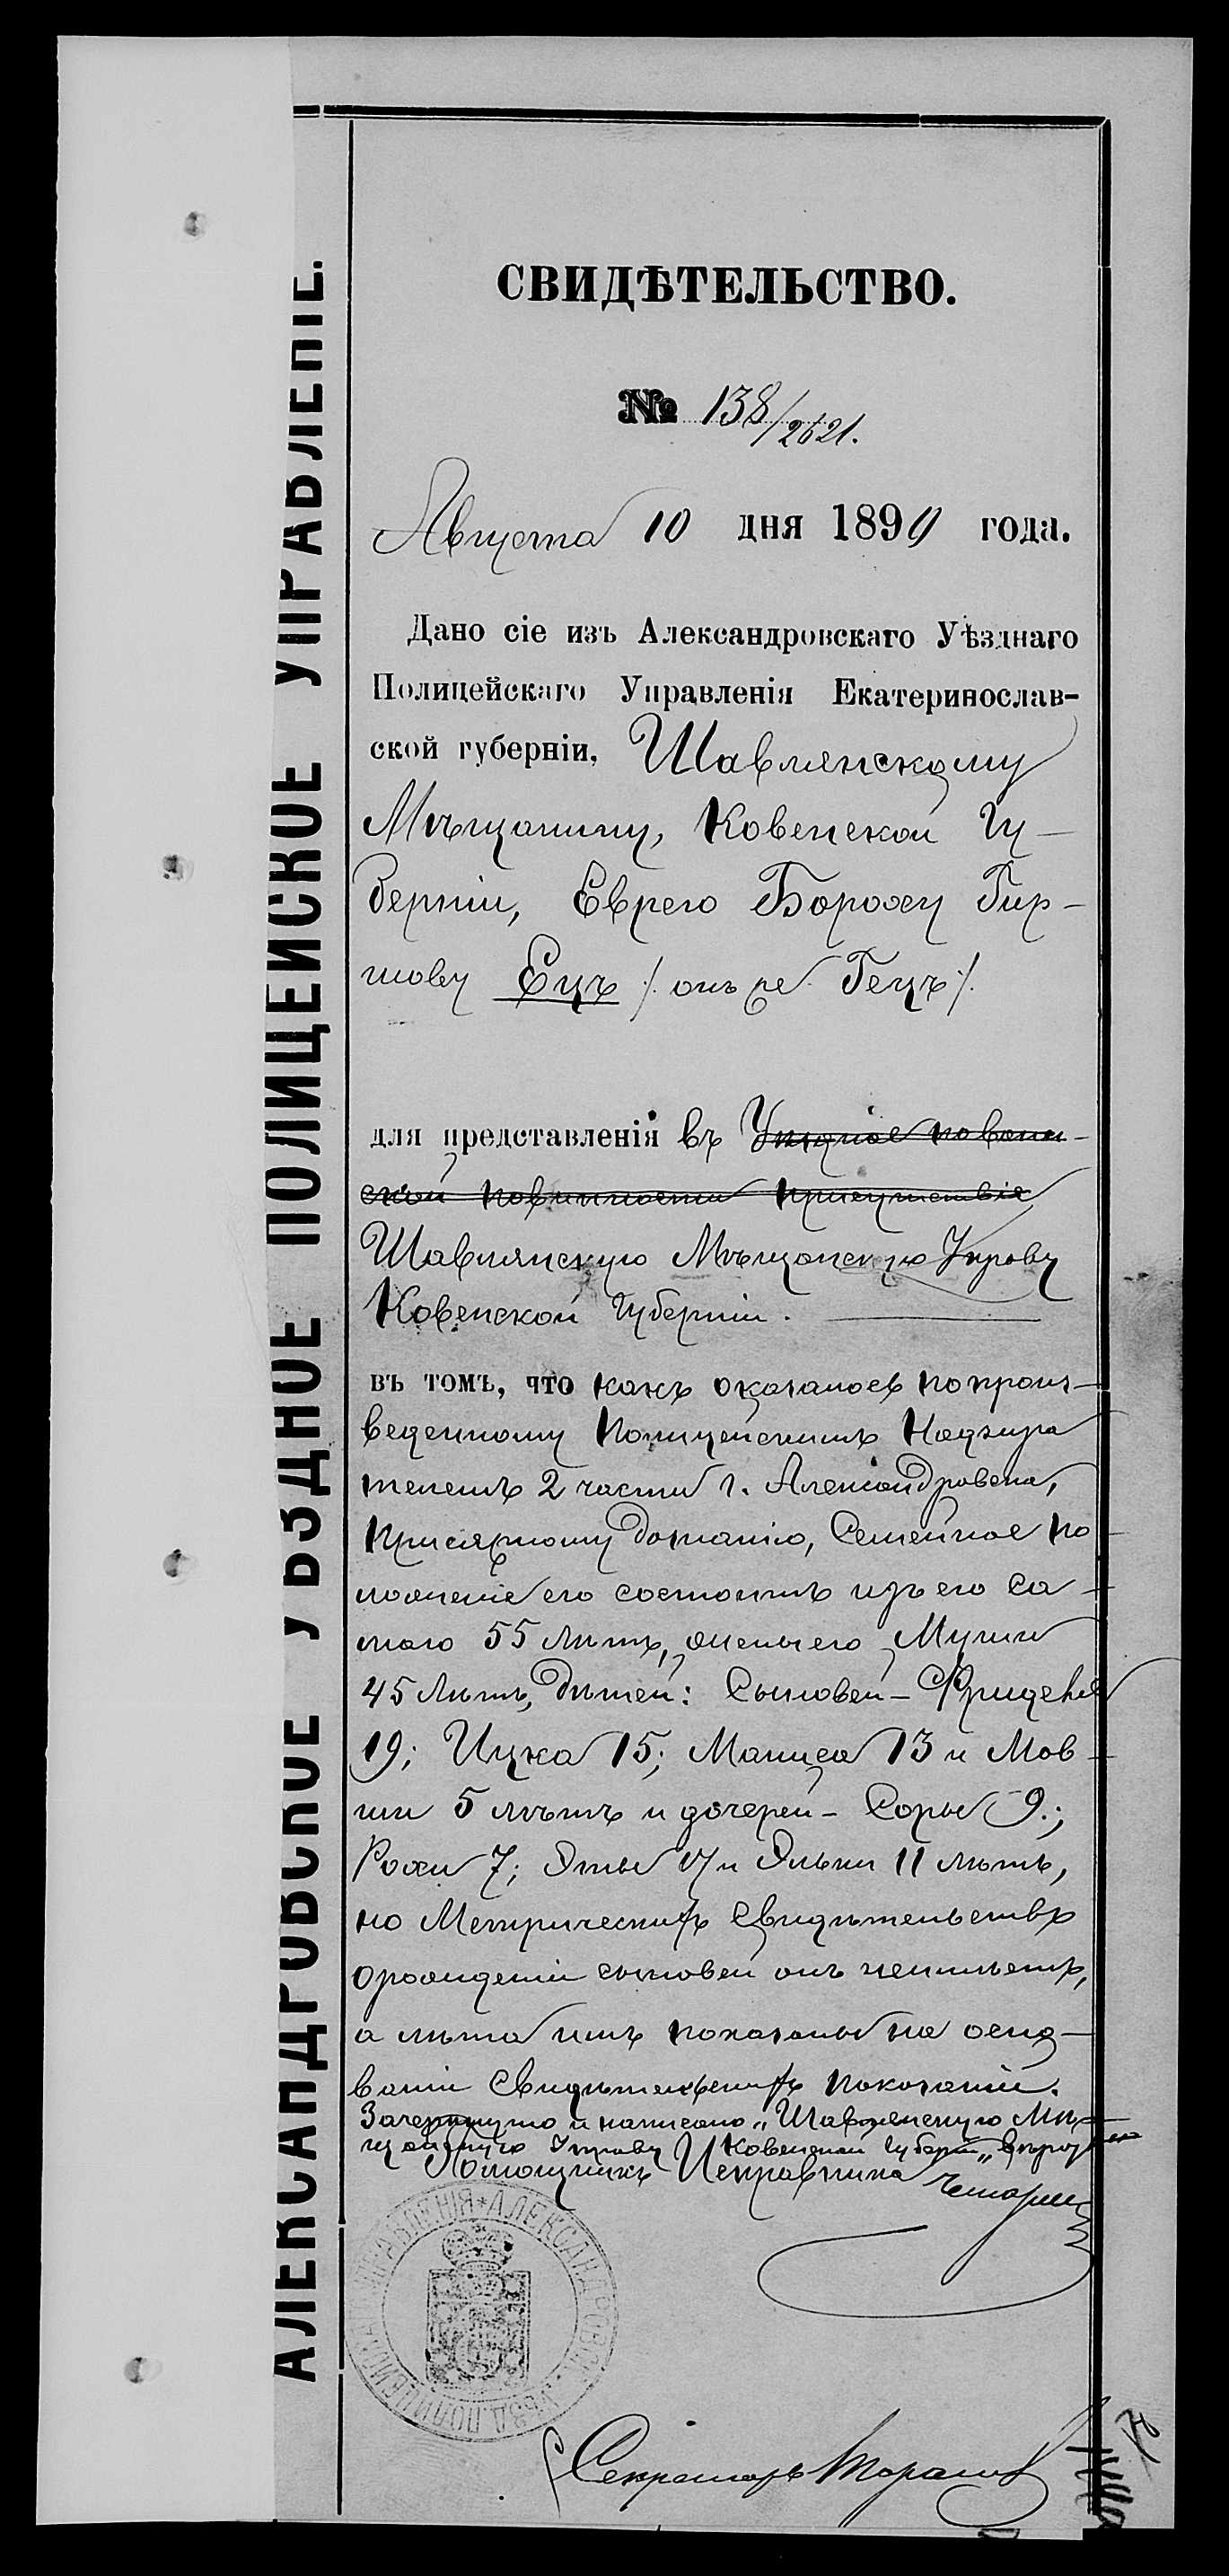 АЛЕКСАНДРОВСКОЕ УѢЗДНОЕ ПОЛИЦЕЙСКОЕ УПРАВЛЕНІЕ.
СВИДѢТЕЛЬСТВО.
№ 138/2621.
Августа 10 дня 1899 года.
Дано сіе изъ Александровскаго Уѣзднаго
Полицейскаго Управленія Екатеринослав-
ской губерніи, Шавлянскому
Мѣщанину, Ковенской Гу-
берніи, Еврею Бороху Гир-
шову Ецъ /. онъ же Гецъ /.
для представленія въ Уѣздное по воин-
ской повинности присутствіе
Шавлянскую Мѣщанскую Управу
Ковенской Губерніи.
въ томъ, что какъ оказалось по произ-
веденному Полицейскимъ Надзира
телемъ 2 части г. Александровска,
присяжному дознанію, Семейное по
ложеніе его состоитъ изъ его са-
маго 55 лѣтъ, жены его Муши
45 лѣтъ, дѣтей: Сыновей –
19; Ицка 15; Маниса 13 и Мов-
ши 5 лѣтъ и дочерей – Соры 9.;
Рохи 7; Эты 17 и Эльки 11 лѣтъ,
но Метрическихъ Свидѣтельствъ
о рожденіи сыновей онъ не имѣетъ,
а лѣта имъ показаны на осно-
ваніи Свидѣтельскихъ показаній.
Зачеркнуто и написано „Шавлянскую Мѣ-
щанскую Управу Ковенской Губерн“
Помощникъ Исправника
Секретарь
АЛЕКСАНДРОВСК. УѢЗД. ПОЛИЦЕЙСК. УПРАВЛЕНІЯ